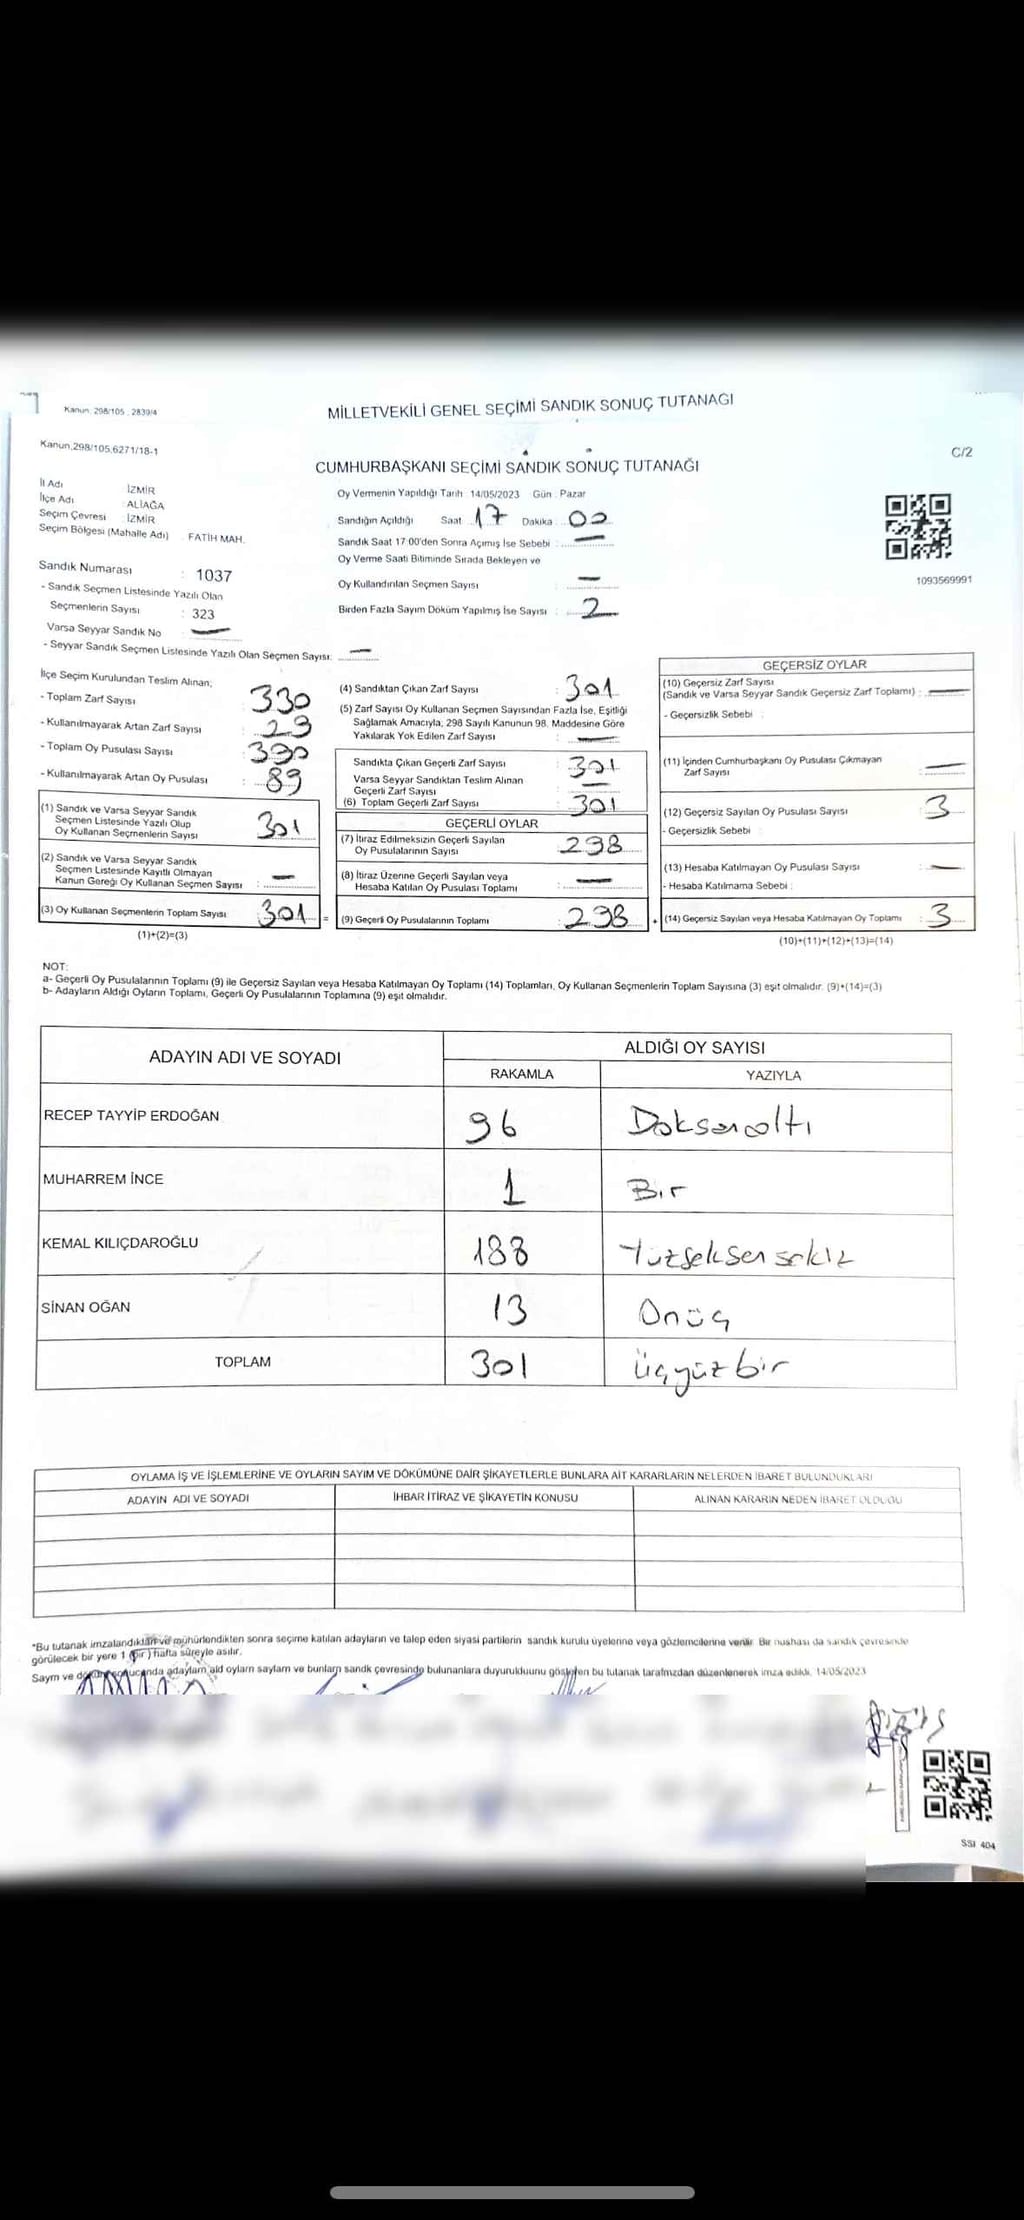 Kanun, 298/105, 2839/4
MİLLETVEKİLİ GENEL SEÇİMİ SANDIK SONUÇ TUTANAĞI
Kanun,298/105,6271/18-1
C/2
CUMHURBAŞKANI SEÇİMİ SANDIK SONUÇ TUTANAĞI
İl Adı İZMİR
İlçe Adı ALİAĞA
Seçim Çevresi İZMİR
Seçim Bölgesi (Mahalle Adı) FATİH MAH.
Sandık Numarası : 1037
- Sandık Seçmen Listesinde Yazılı Olan
Seçmenlerin Sayısı : 323
Varsa Seyyar Sandık No —
- Seyyar Sandık Seçmen Listesinde Yazılı Olan Seçmen Sayısı: —
Oy Vermenin Yapıldığı Tarih 14/05/2023 Gün : Pazar
Sandığın Açıldığı Saat 17 Dakika 00
Sandık Saat 17:00'den Sonra Açımış İse Sebebi : —
Oy Verme Saati Bitiminde Sırada Bekleyen ve
Oy Kullandırılan Seçmen Sayısı —
Birden Fazla Sayım Döküm Yapılmış İse Sayısı : 2
1093569991
İlçe Seçim Kurulundan Teslim Alınan;
- Toplam Zarf Sayısı : 330
- Kullanılmayarak Artan Zarf Sayısı : 29
- Toplam Oy Pusulası Sayısı : 390
- Kullanılmayarak Artan Oy Pusulası : 89
(1) Sandık ve Varsa Seyyar Sandık
Seçmen Listesinde Yazılı Olup
Oy Kullanan Seçmenlerin Sayısı : 301
(2) Sandık ve Varsa Seyyar Sandık
Seçmen Listesinde Kayıtlı Olmayan
Kanun Gereği Oy Kullanan Seçmen Sayısı : —
(3) Oy Kullanan Seçmenlerin Toplam Sayısı : 301 =
(1)+(2)=(3)
(4) Sandıktan Çıkan Zarf Sayısı : 301
(5) Zarf Sayısı Oy Kullanan Seçmen Sayısından Fazla İse, Eşitliği
Sağlamak Amacıyla, 298 Sayılı Kanunun 98. Maddesine Göre
Yakılarak Yok Edilen Zarf Sayısı : —
Sandıkta Çıkan Geçerli Zarf Sayısı : 301
Varsa Seyyar Sandıktan Teslim Alınan
Geçerli Zarf Sayısı : —
(6) Toplam Geçerli Zarf Sayısı : 301
GEÇERLİ OYLAR
(7) İtiraz Edilmeksizin Geçerli Sayılan
Oy Pusulalarının Sayısı : 298
(8) İtiraz Üzerine Geçerli Sayılan veya
Hesaba Katılan Oy Pusulası Toplamı : —
(9) Geçerli Oy Pusulalarının Toplamı : 298 +
GEÇERSİZ OYLAR
(10) Geçersiz Zarf Sayısı
(Sandık ve Varsa Seyyar Sandık Geçersiz Zarf Toplamı) : —
- Geçersizlik Sebebi :
(11) İçinden Cumhurbaşkanı Oy Pusulası Çıkmayan
Zarf Sayısı : —
(12) Geçersiz Sayılan Oy Pusulası Sayısı : 3
- Geçersizlik Sebebi :
(13) Hesaba Katılmayan Oy Pusulası Sayısı : —
- Hesaba Katılmama Sebebi :
(14) Geçersiz Sayılan veya Hesaba Katılmayan Oy Toplamı : 3
(10)+(11)+(12)+(13)=(14)
NOT:
a- Geçerli Oy Pusulalarının Toplamı (9) ile Geçersiz Sayılan veya Hesaba Katılmayan Oy Toplamı (14) Toplamları, Oy Kullanan Seçmenlerin Toplam Sayısına (3) eşit olmalıdır. (9)+(14)=(3)
b- Adayların Aldığı Oyların Toplamı, Geçerli Oy Pusulalarının Toplamına (9) eşit olmalıdır.
ADAYIN ADI VE SOYADI
ALDIĞI OY SAYISI
RAKAMLA YAZIYLA
RECEP TAYYİP ERDOĞAN 96 Doksanaltı
MUHARREM İNCE 1 Bir
KEMAL KILIÇDAROĞLU 188 Yüzseksensekiz
SİNAN OĞAN 13 Onüç
TOPLAM 301 üçyüzbir
OYLAMA İŞ VE İŞLEMLERİNE VE OYLARIN SAYIM VE DÖKÜMÜNE DAİR ŞİKAYETLERLE BUNLARA AİT KARARLARIN NELERDEN İBARET BULUNDUKLARI
ADAYIN ADI VE SOYADI İHBAR İTİRAZ VE ŞİKAYETİN KONUSU ALINAN KARARIN NEDEN İBARET OLDUĞU
*Bu tutanak imzalandıktan ve mühürlendikten sonra seçime katılan adayların ve talep eden siyasi partilerin sandık kurulu üyelerine veya gözlemcilerine verilir. Bir nushası da sandık çevresinde
görülecek bir yere 1 (bir) hafta süreyle asılır.
Saym ve döküm sonucanda adaylarn ald oylarn saylarn ve bunlarn sandk çevresinde bulunanlara duyurulduunu gösteren bu tutanak tarafmzdan düzenlenerek imza edildi. 14/05/2023
SSI 404